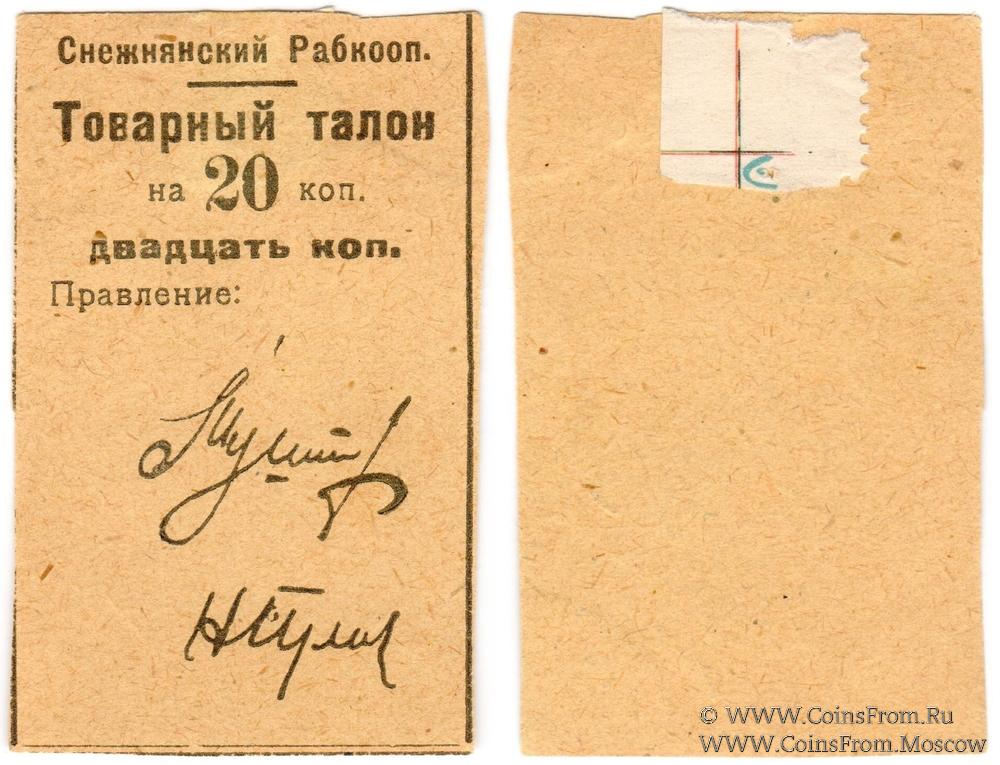 Снежнянский Рабкооп.
Товарный талон
на 20 коп.
двадцать коп.
Правление:
© WWW.CoinsFrom.Ru
WWW.CoinsFrom.Moscow